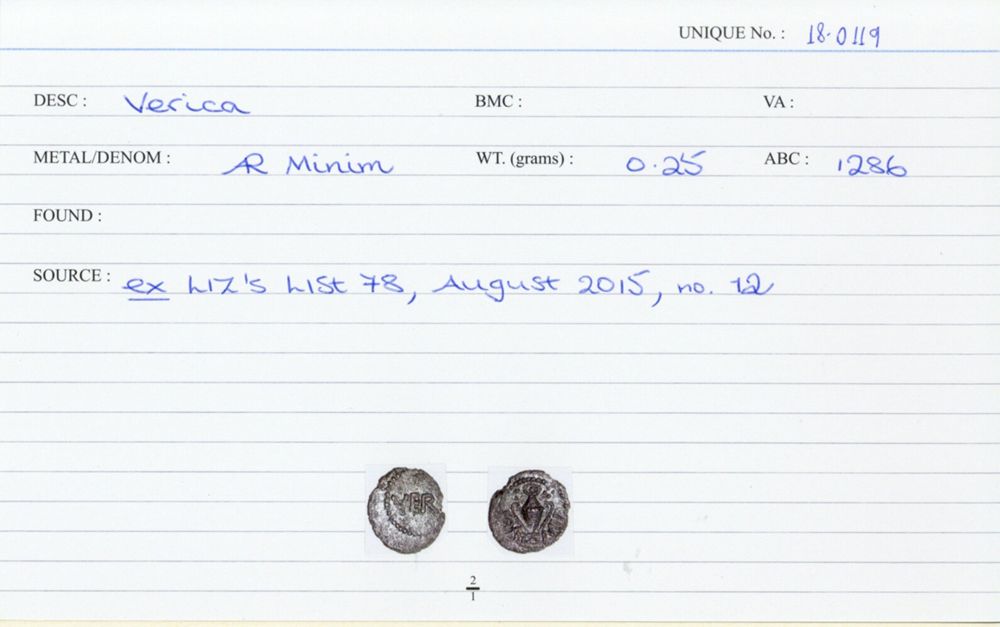 UNIQUE No. : 18.0119
DESC : Verica BMC : VA :
METAL/DENOM : AR Minim WT. (grams) : 0.25 ABC : 1286
FOUND :
SOURCE : ex LIZ'S LIST 78, August 2015, no. 12
VER
2
1